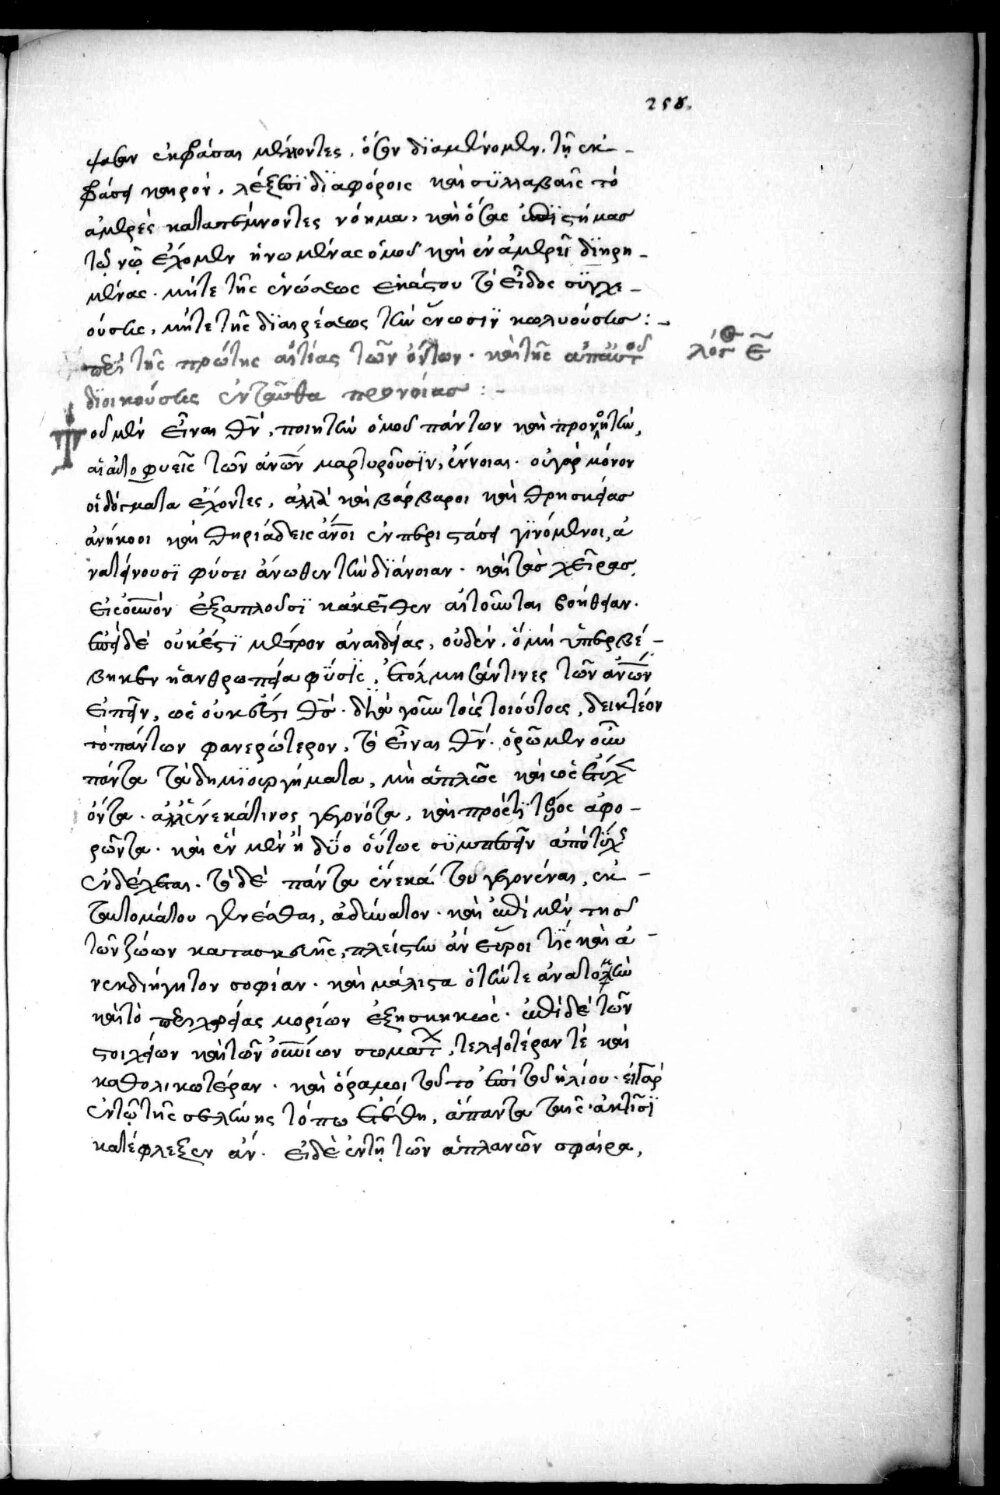 258.
ψαμεν ἐκφάσαι μέλλοντες, ὅθεν διαμένομεν. τῇ ἐκ-
φάσει καιρὸν, λέξεσι διαφόροις καὶ συλλαβαῖς τὸ
ἀμερὲς κατατέμνοντες νόημα, καὶ ὅσας ἐπιστήμας
τῷ νῷ ἔχομεν ἡνωμένας ὁμοῦ καὶ ἐν ἀμερεῖ διηρη-
μένας. μήτε τῆς ἑνώσεως ἑκάστου τὸ εἶδος συγχε-
ούσης, μήτε τῆς διαιρέσεως τὴν ἕνωσιν κωλυούσης:-
περὶ τῆς πρώτης αἰτίας τῶν ὄντων. καὶ τῆς ἁπανταχοῦ
λόγος ε
διοικούσης ἐνταῦθα προνοίας:-
Τοῦ μὲν εἶναι θν, ποιητὴν ὁμοῦ πάντων καὶ προνοητὴν,
αἱ αὐτοφυεῖς τῶν ἀνων μαρτυροῦσιν, ἔννοιαι. οὐ γὰρ μόνον
οἱ δόγματα ἔχοντες, ἀλλὰ καὶ βάρβαροι καὶ θρησκείας
ἀνήκοοι καὶ θηριώδεις ἀνοι ἐν περιστάσει γινόμενοι, ἀ
νατείνουσι φύσει ἄνωθεν τὴν διάνοιαν. καὶ τὰς χεῖρας
εἰς οὐνὸν ἐξαπλοῦσι κἀκεῖθεν αἰτοῦνται βοήθειαν.
ἐπεὶ δὲ οὐκ ἔστι μέτρον ἀναιδείας, οὐδὲν, ὃ μὴ ὑπερβέ-
βηκεν ἡ ἀνθρωπεία φύσις, ἐτόλμησάν τινες τῶν ἀνων
εἰπεῖν, ὡς οὐκ ἔστι θς. δι' ἣν γοῦν τοὺς τοιούτους, δεικτέον
τὸ πάντων φανερώτερον, τὸ εἶναι θν. ὁρῶμεν οὖν
πάντα τὰ δημιουργήματα, μὴ ἁπλῶς καὶ ὡς ἔτυχεν
ὄντα. ἀλλ' ἕνεκά τινος γεγονότα, καὶ πρός τι τέλος ἀφο-
ρῶντα. καὶ ἓν μὲν ἢ δύο οὕτως συμπεσεῖν ἀπὸ τύχης
ἐνδέχεται. τὸ δὲ πάντα ἕνεκά του γεγονέναι, ἐκ-
ταυτομάτου γενέσθαι, ἀδύνατον. καὶ ἐπὶ μὲν τῆς
τῶν ζώων κατασκευῆς, πλείστην ἂν εὕροι τίς καὶ ἀ-
νεκδιήγητον σοφίαν. καὶ μάλιστα ὁ τήν τε ἀνατομὴν
καὶ τὸ περὶ χρείας μορίων ἐξησκηκὼς. ἐπὶ δὲ τῶν
στοιχείων καὶ τῶν οὐνίων σωμάτων, τελειοτέραν τὲ καὶ
καθολικωτέραν. καὶ ὅρα μοι τοῦτο ἐπὶ τοῦ ἡλίου. εἰ γὰρ
ἐν τῷ τῆς σελήνης τόπῳ ἐτέθη, ἅπαντα ταῖς ἀκτῖσι
κατέφλεξεν ἄν. εἰ δὲ ἐν τῇ τῶν ἁπλανῶν σφαίρα,